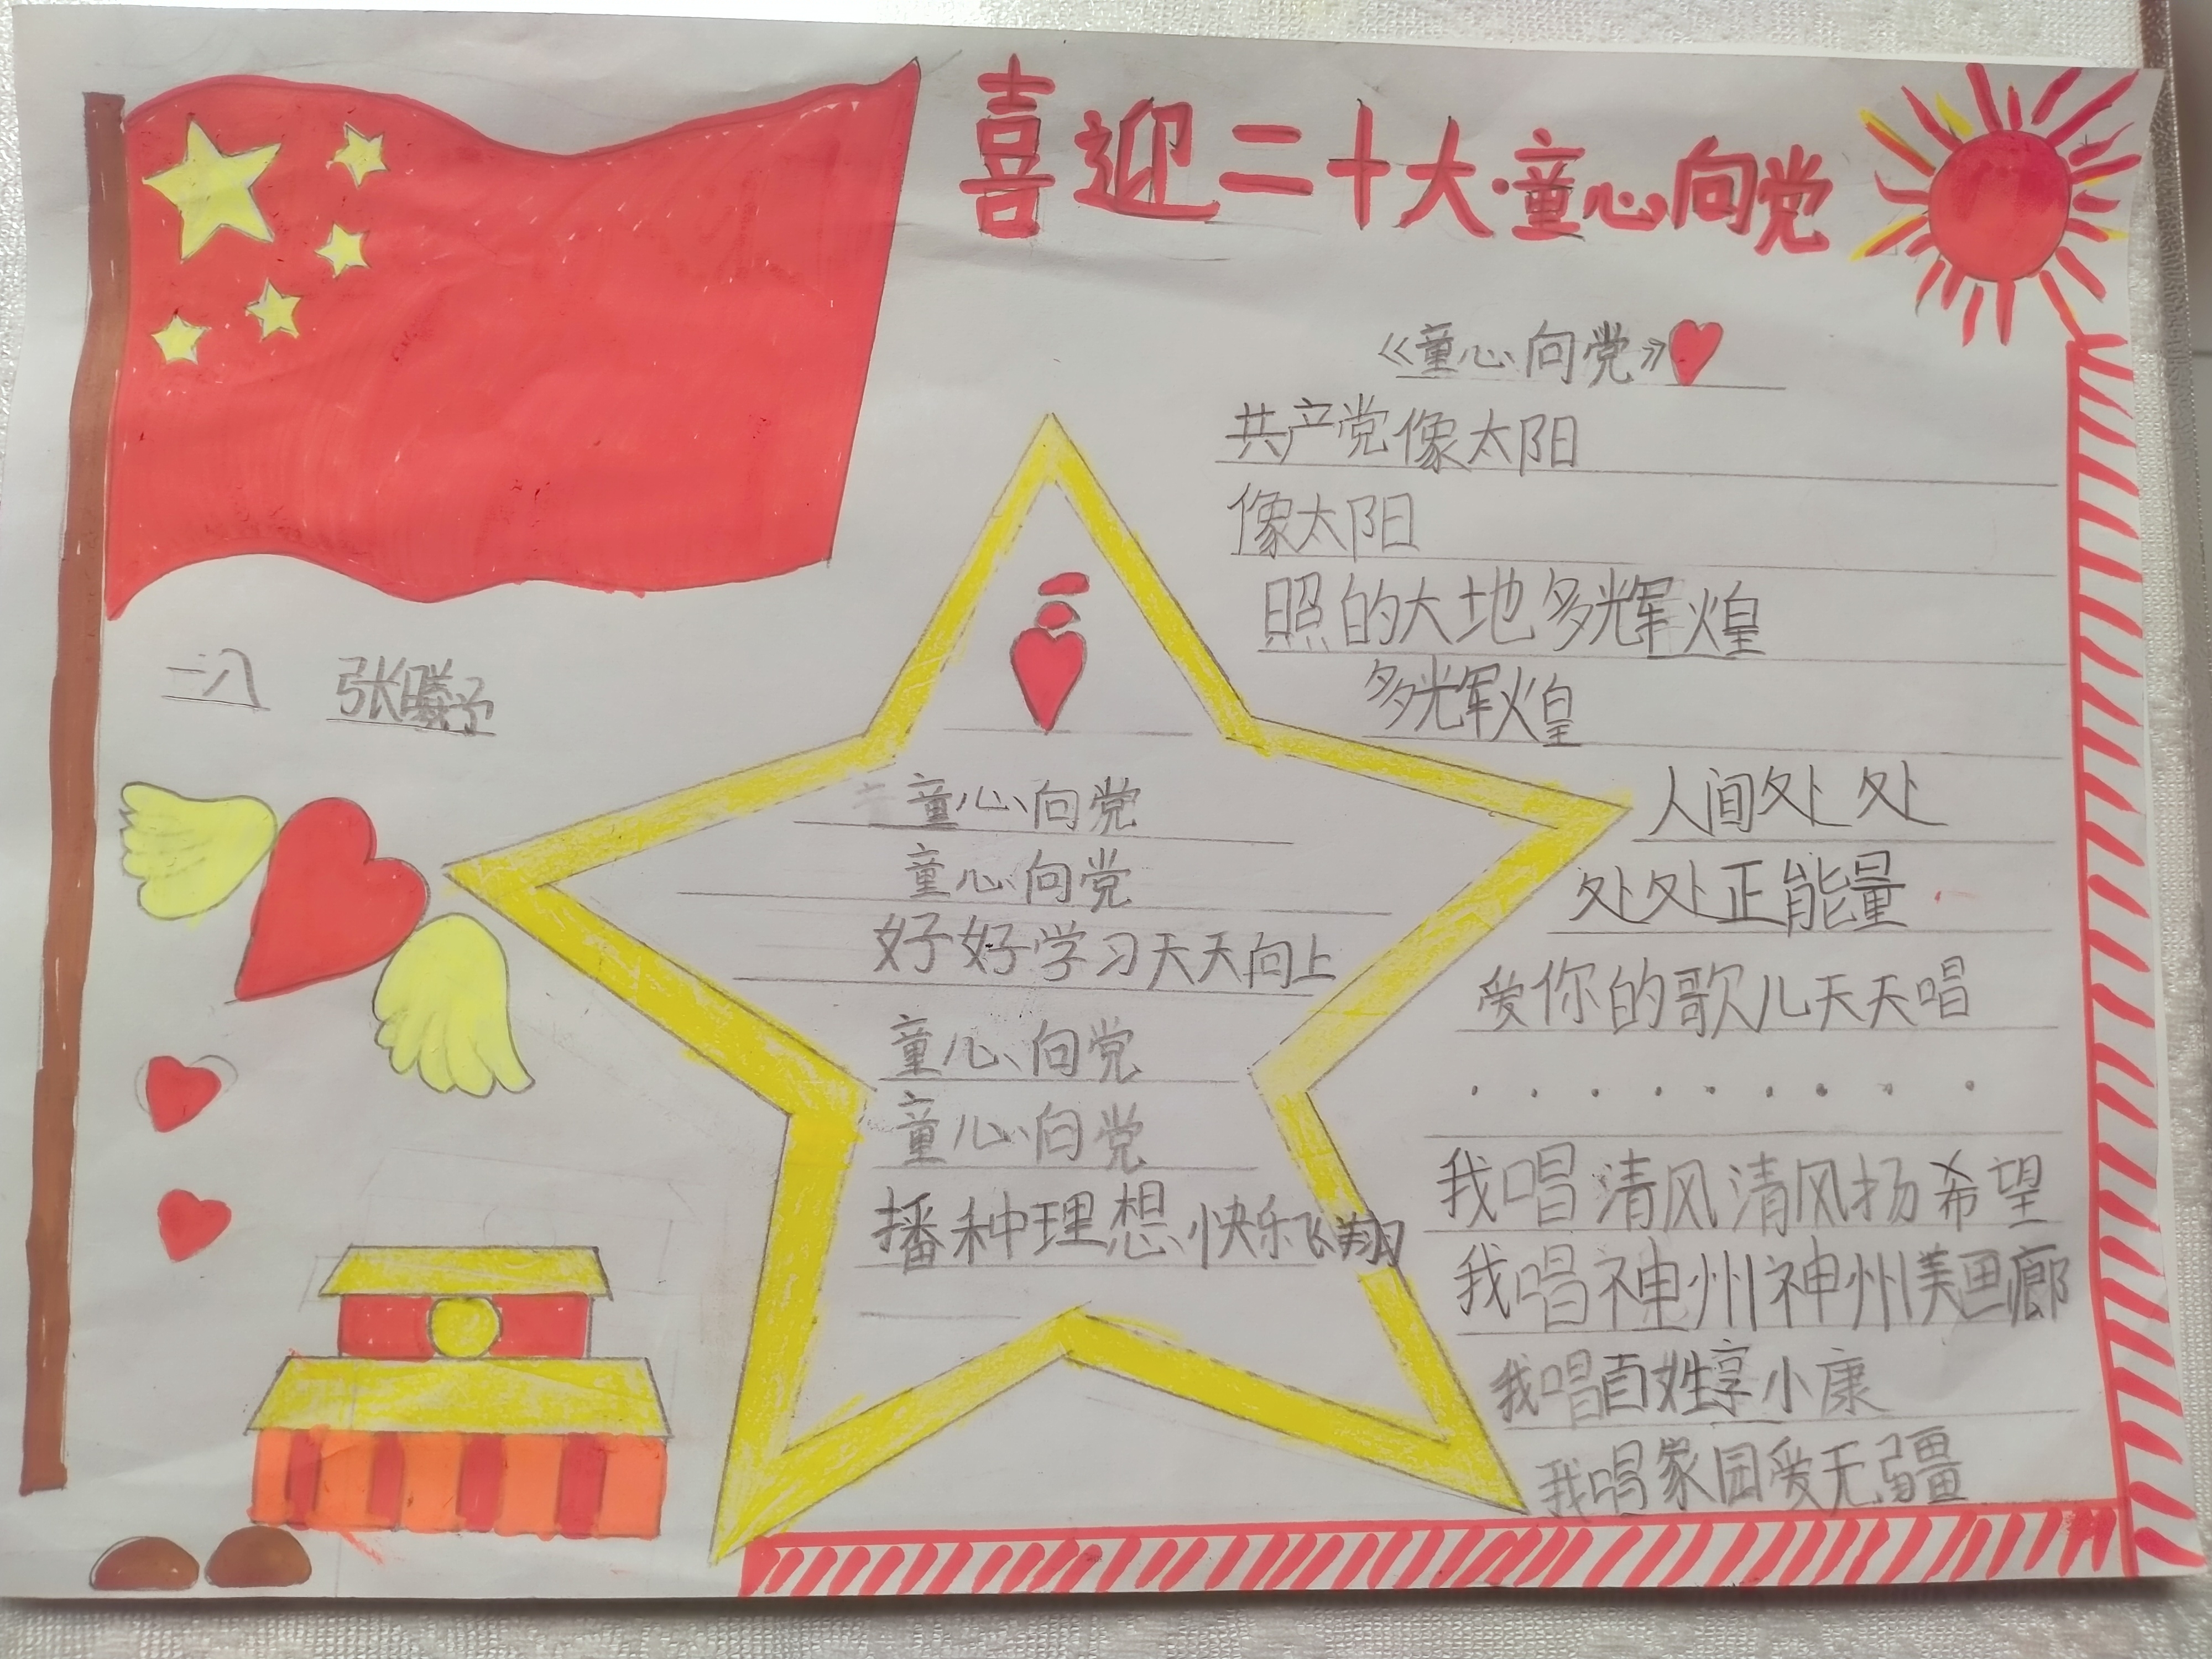 喜迎二十大·童心向党
《童心向党》
共产党像太阳
像太阳
照的大地多辉煌
多辉煌
人间处处
处处正能量
爱你的歌儿天天唱
.........
我唱清风清风扬希望
我唱神州神州美画廊
我唱百姓享小康
我唱家园爱无疆
一八 张曦予
童心向党
童心向党
好好学习天天向上
童心向党
童心向党
播种理想快乐飞翔